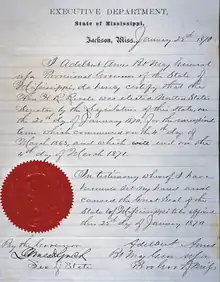 EXECUTIVE DEPARTMENT,
State of Mississippi,
Jackson, Miss. January 25th 1870
I Adelbert Ames Bt Maj General
U.S.A. Provisional Governor of the State of
Mississippi, do hereby certify that the
Hon. H. R. Revels was elected United States
Senator by the Legislature of this State, on
the 20th day of January 1870, for the unexpired
term which commenced on the 4th day of
March 1865, and which will end on the
4th day of March 1871.
In testimony whereof I have
hereunto set my hand and
caused the Great Seal of the
State of Mississippi to be affixed
this 25th day of January 1870
By the Governor
Adelbert Ames
James Lynch
Bt Maj Gen U.S.A.
Sec of State
Pro Gov of Miss